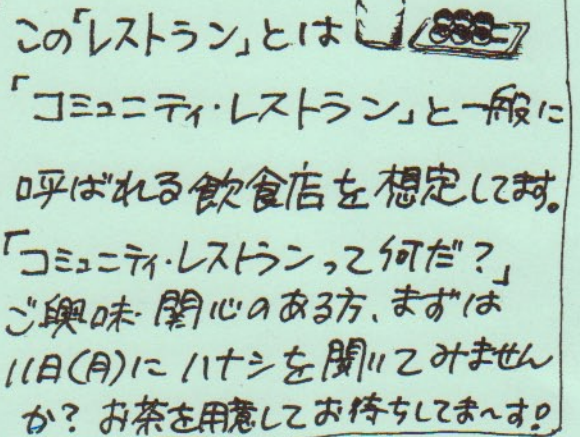 この「レストラン」とは
「コミュニティ・レストラン」と一般に
呼ばれる飲食店を想定してます。
「コミュニティ・レストランって何だ？」
ご興味・関心のある方、まずは
11日(月)にハナシを聞いてみません
か？お茶を用意してお待ちしてま〜す！